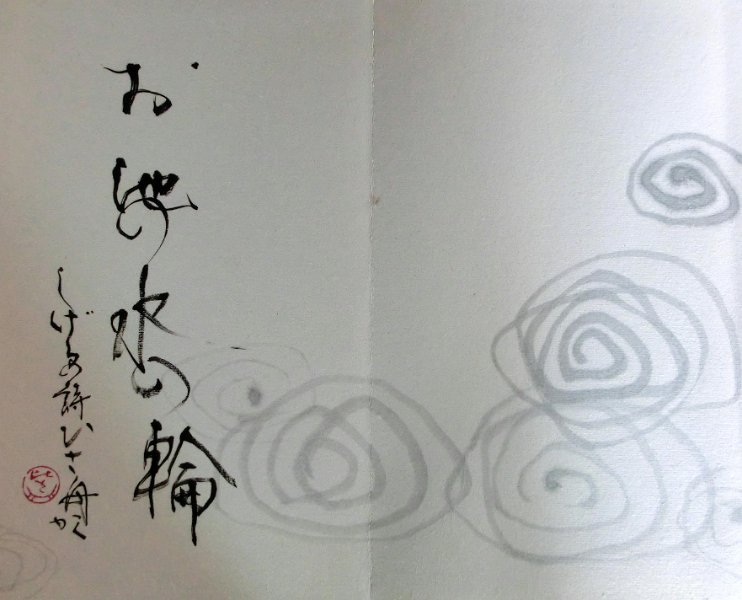 お池の水の輪
しげる詩ひさ舟かく